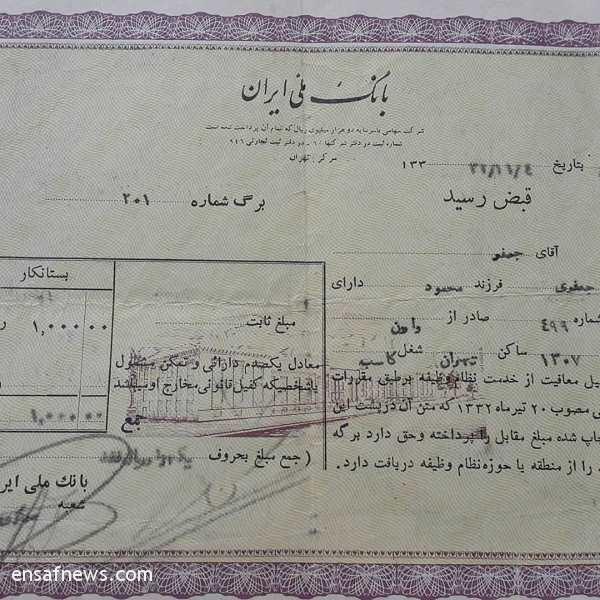 بانک ملی ایران
شرکت سهامی با سرمایه دو هزار میلیون ریال که تمام آن پرداخت شده است
شماره ثبت در دفتر شرکتها ۱۰ - در دفتر ثبت تجارتی ۹۴۶
مرکز: تهران
بتاریخ ۱۳۳
قبض رسید
برگ شماره ۲۰۱
آقای جعفر
جعفوی فرزند محمود دارای
شماره ۴۹۹ صادر از
۱۳۰۷ ساکن تهران شغل کاسب
یل معافیت از خدمت نظام وظیفه برطبق مقررات
ی مصوب ۲۰ تیرماه ۱۳۳۲ که متن آن در پشت این
چاپ شده مبلغ مقابل را پرداخته وحق دارد برگه
د را از منطقه یا حوزه نظام وظیفه دریافت دارد.
بستانکار
مبلغ ثابت
۱,۰۰۰ ۰۰
معادل یکصدم دارائی و تمکن مشمول
یا شخصیکه کفیل قانونی مخارج اوست
جمع
۱,۰۰۰ ۰۰
( جمع مبلغ بحروف
بانک ملی ایر
شعبه
ensafnews.com